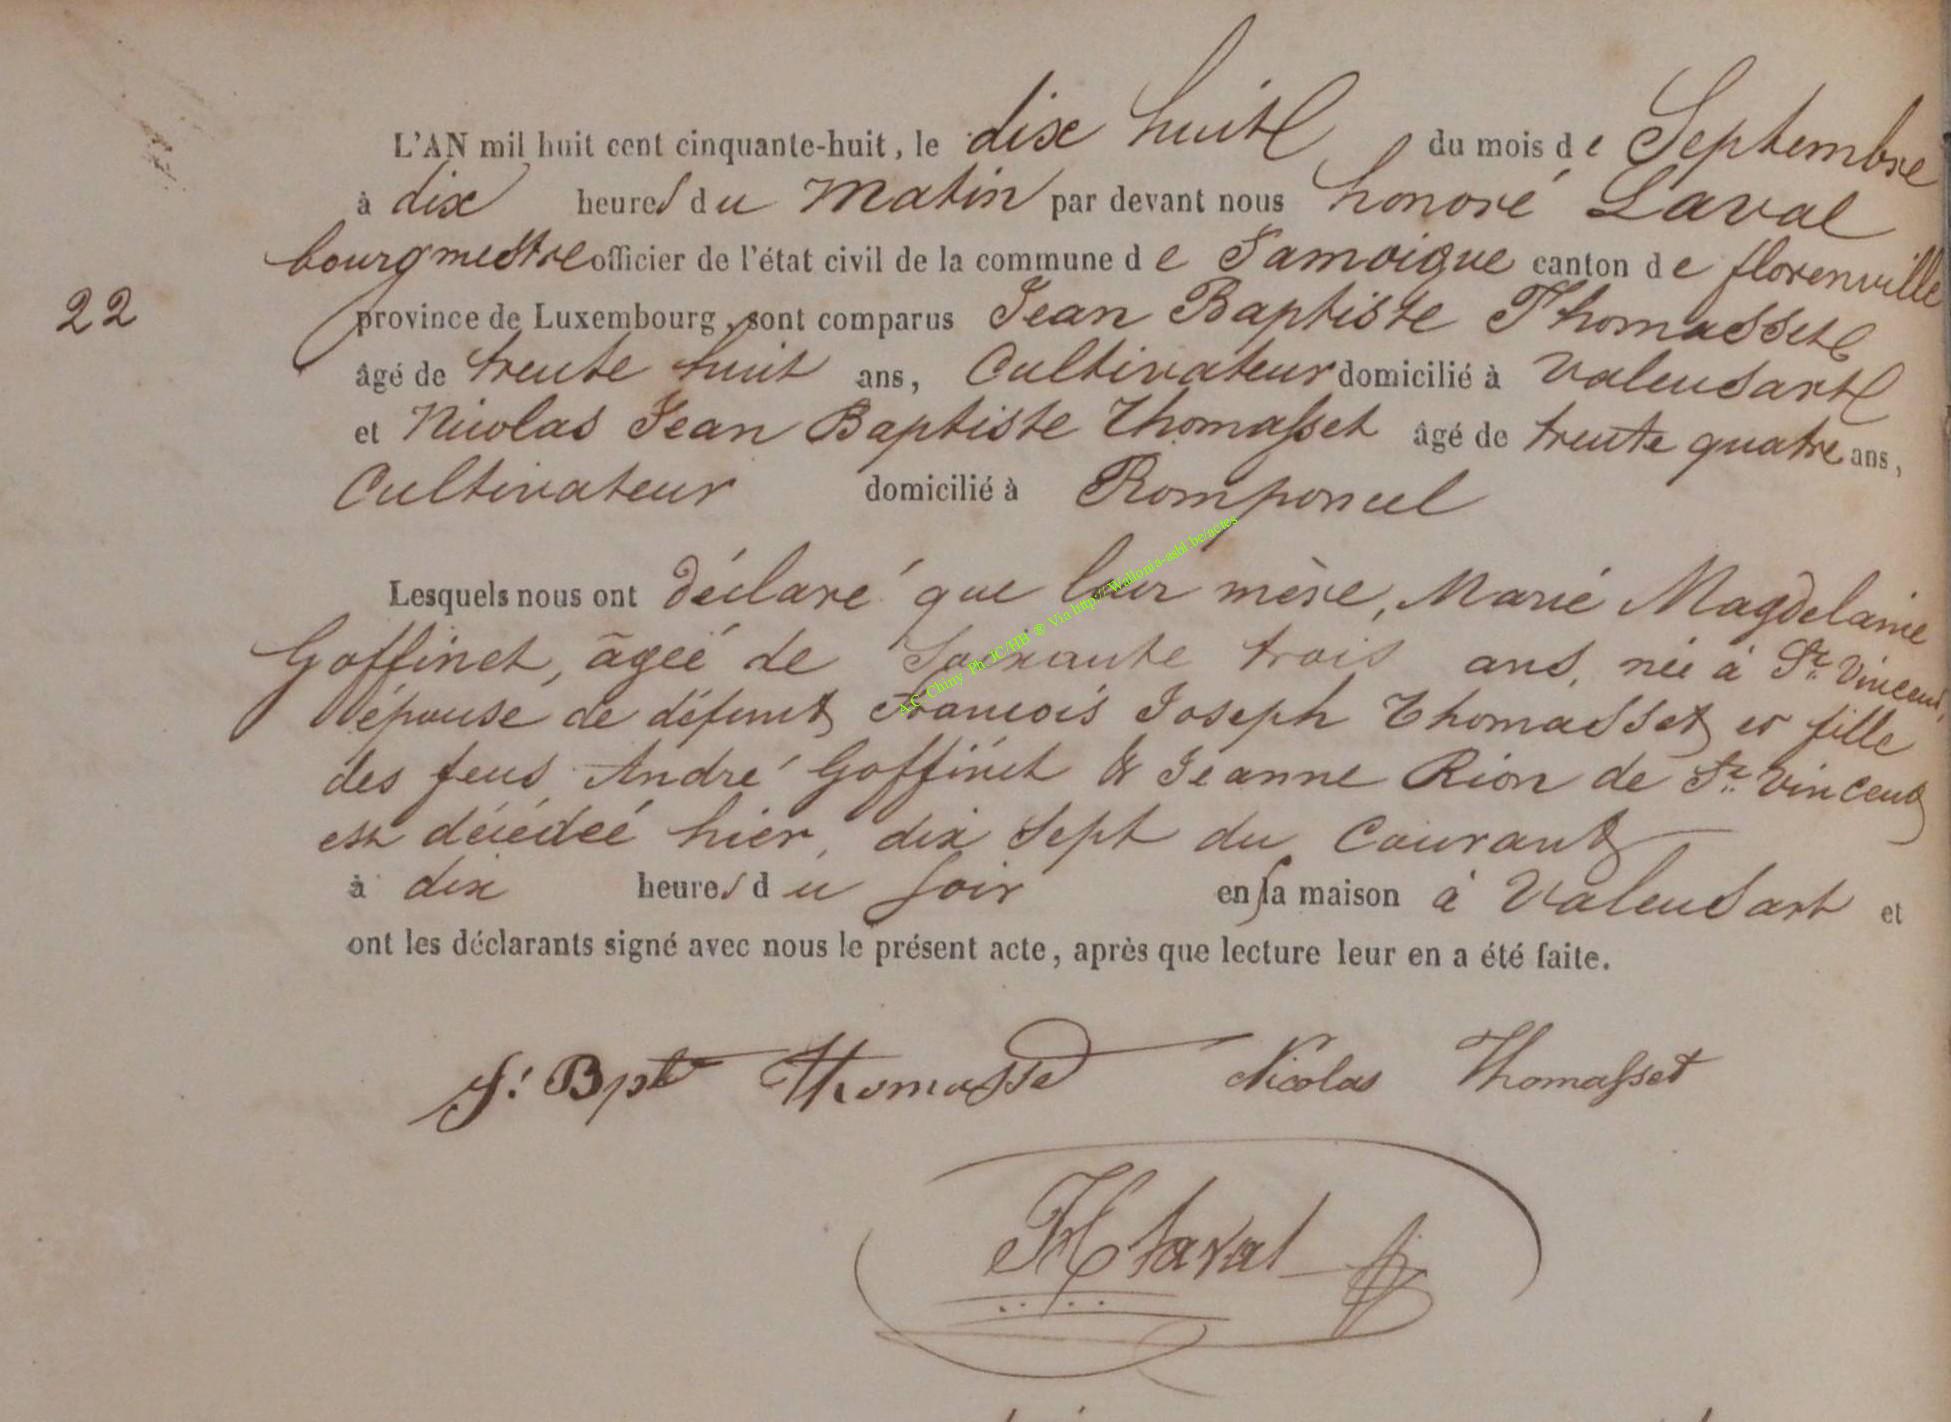 L'AN mil huit cent cinquante-huit, le dix huit du mois de Septembre
à dix heures du matin par devant nous honoré Laval
bourgmestre officier de l'état civil de la commune de Jamoigne canton de florenville
22
province de Luxembourg, sont comparus Jean Baptiste Thomasset
âgé de trente huit ans, Cultivateur domicilié à Valensart
et Nicolas Jean Baptiste Thomasset âgé de trente quatre ans,
Cultivateur domicilié à Romponcel
Lesquels nous ont déclaré que leur mère, Marie Magdelaine
Goffinet, âgée de Soixante trois ans, née à St. Vincent,
épouse de défunt François Joseph Thomasset et fille
des feus André Goffinet & Jeanne Rion de St. Vincent
est décédée hier, dix sept du Courant
à dix heures du soir en sa maison à Valensart et
ont les déclarants signé avec nous le présent acte, après que lecture leur en a été faite.
J. Bpte Thomasset Nicolas Thomasset
H Laval
A.C Chiny Ph JC/HB ® Via http://Wallonia-asbl.be/actes